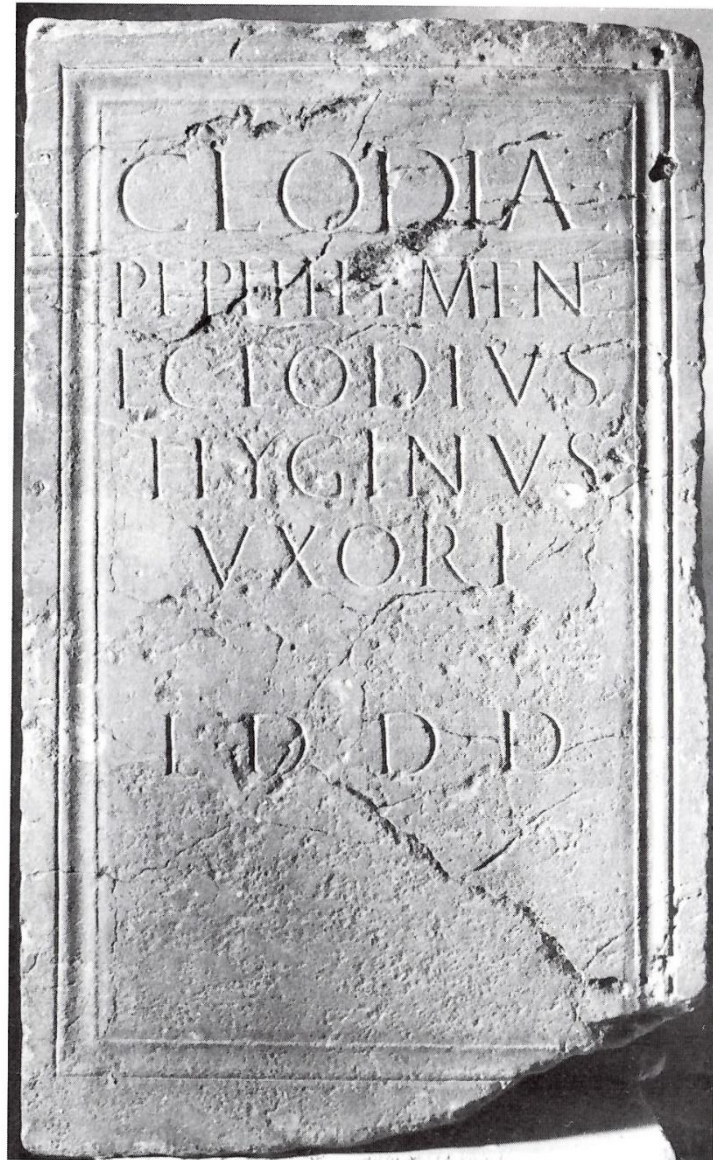 CLODIA
PEPHILEMEN
L CLODIVS
HYGINVS
VXORI
L D D D